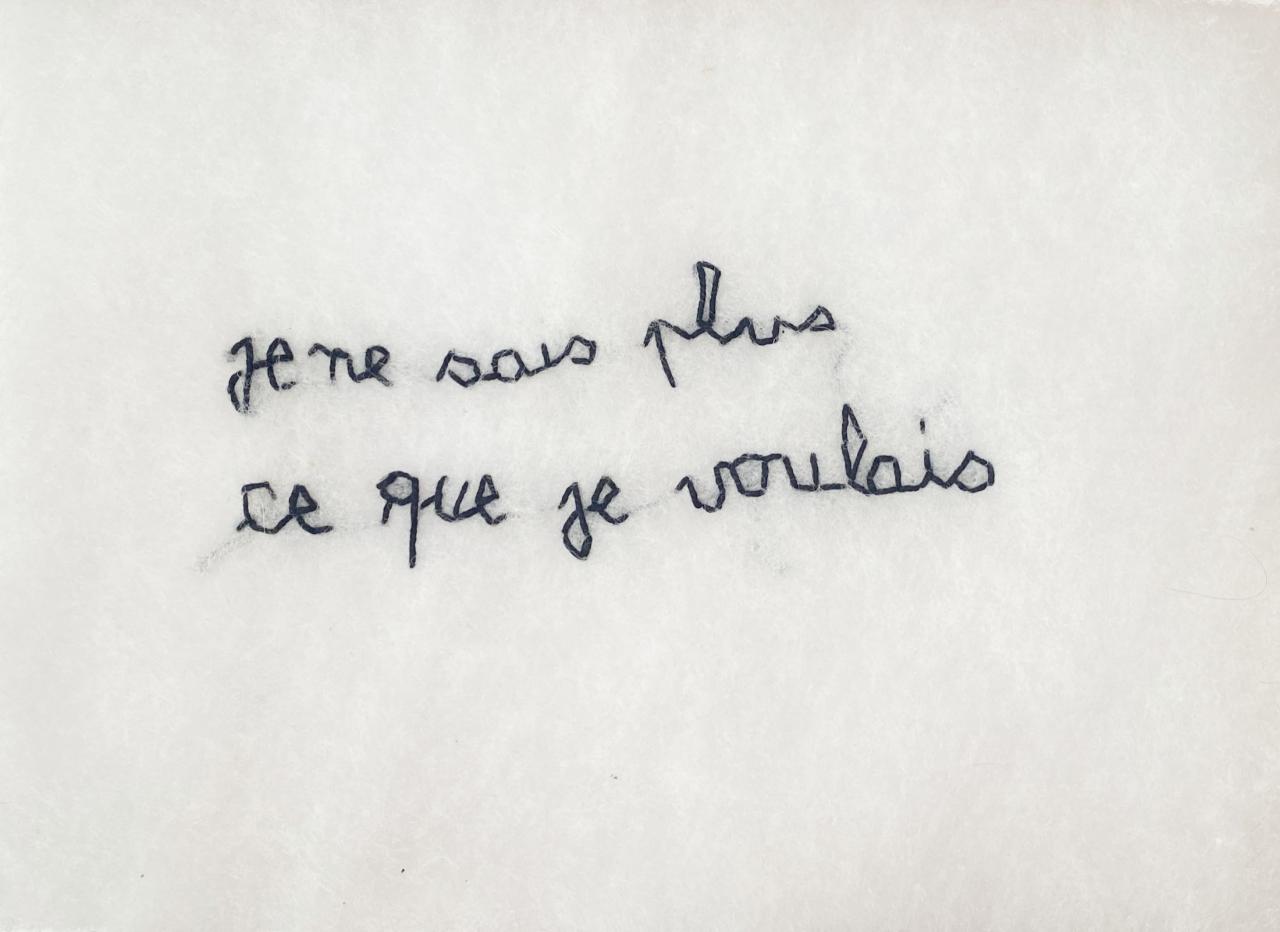 je ne sais plus
ce que je voulais